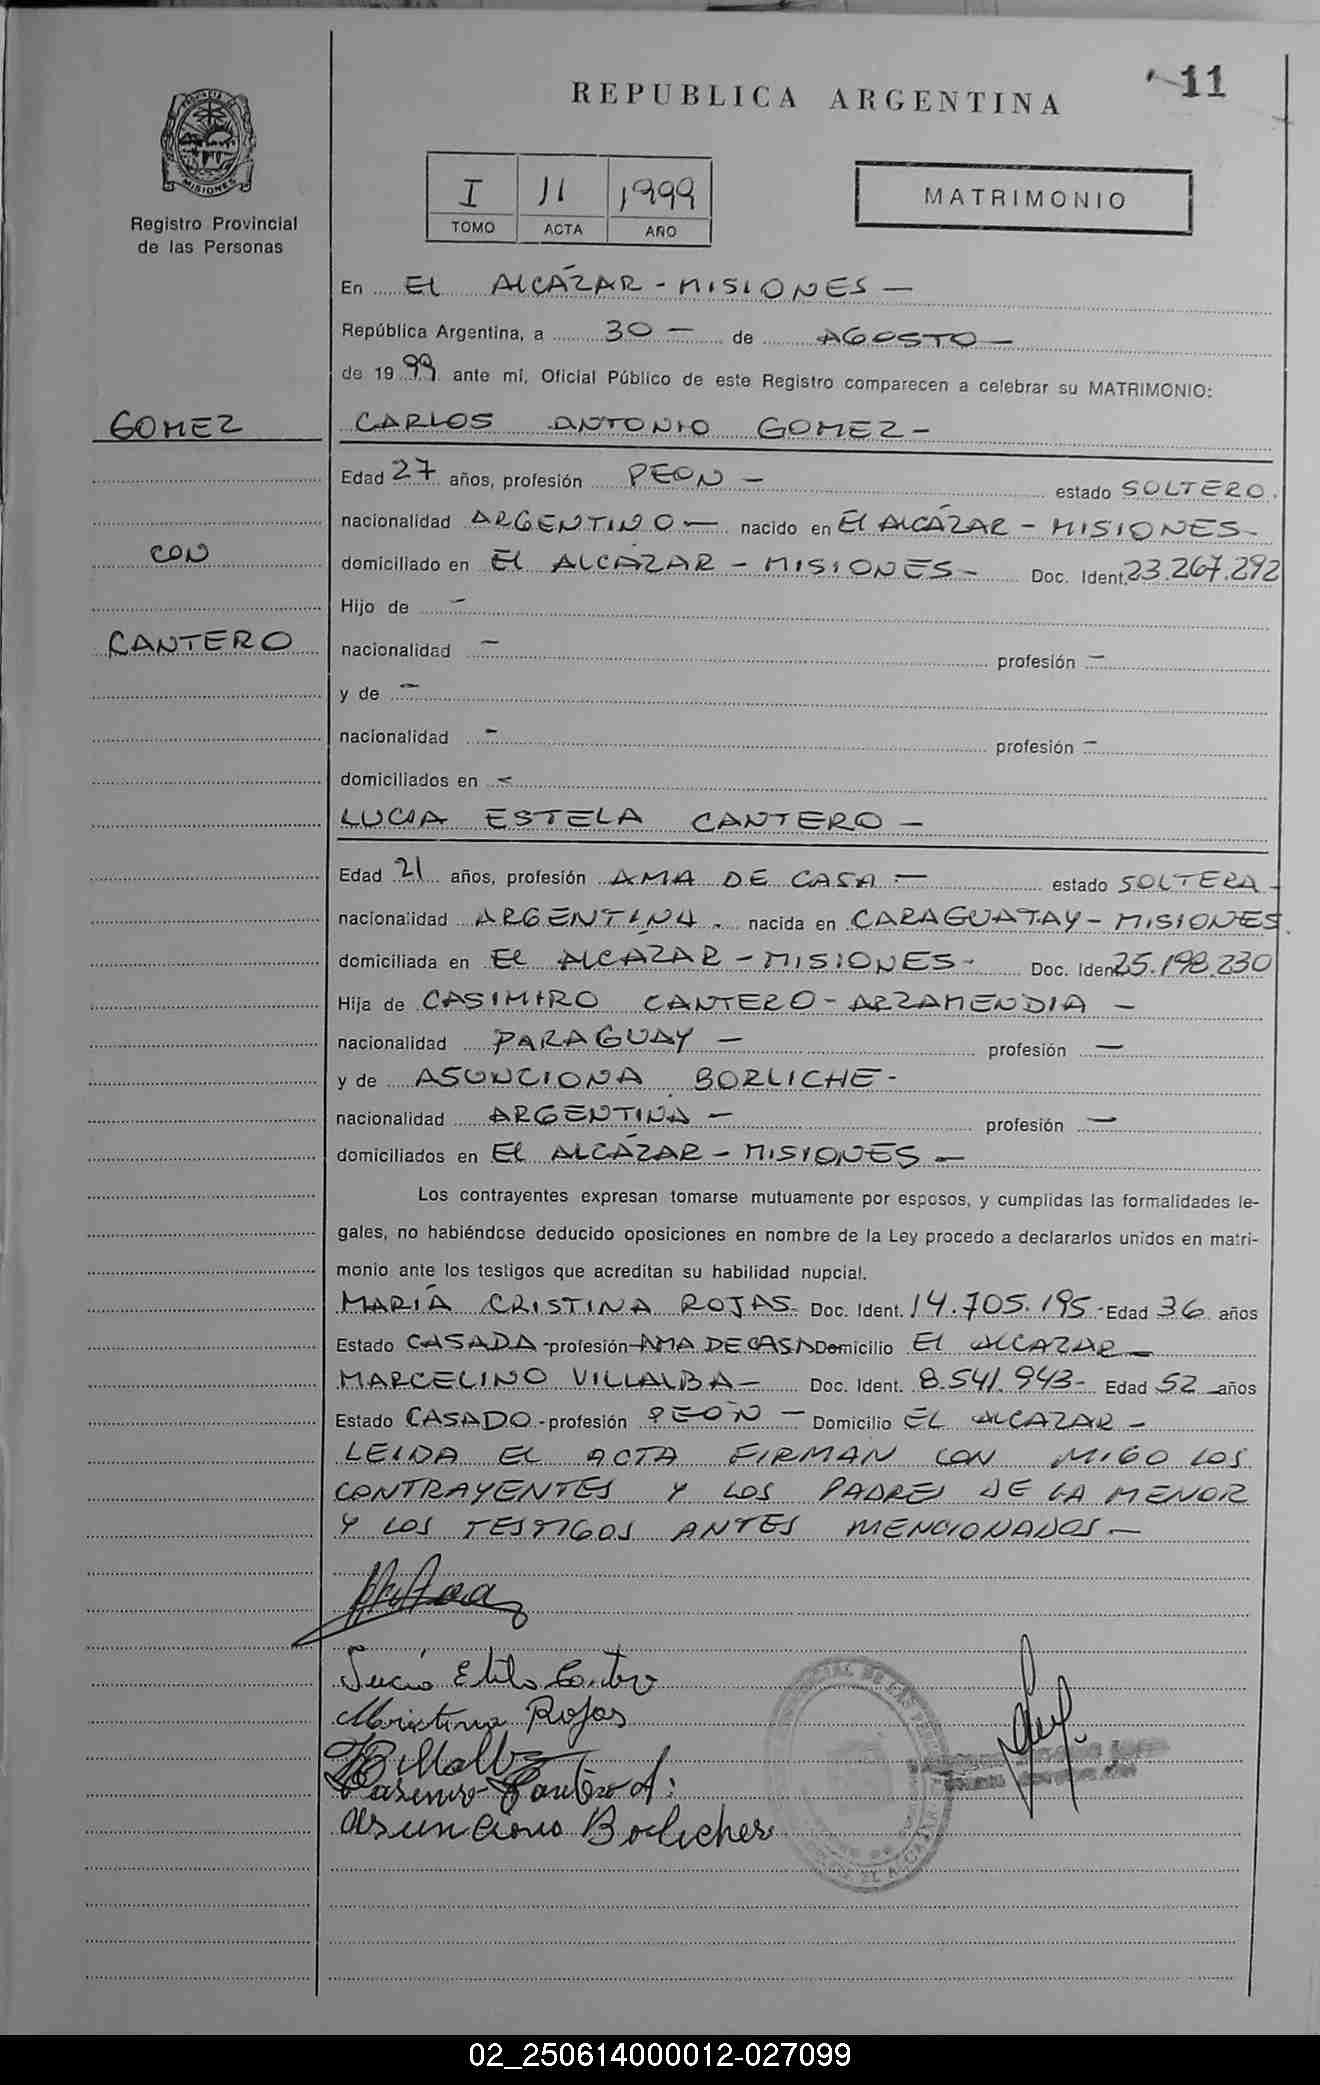 11
REPUBLICA ARGENTINA
PROVINCIA DE
MISIONES
Registro Provincial
de las Personas
I 11 1999
TOMO ACTA AÑO
MATRIMONIO
En EL ALCÁZAR - MISIONES -
República Argentina, a 30 - de AGOSTO -
de 1999 ante mí, Oficial Público de este Registro comparecen a celebrar su MATRIMONIO:
GOMEZ
CARLOS ANTONIO GOMEZ -
Edad 27 años, profesión PEON - estado SOLTERO.
nacionalidad ARGENTINO - nacido en El ALCÁZAR - MISIONES -
CON
domiciliado en El ALCÁZAR - MISIONES - Doc. Ident. 23.267.292
Hijo de -
CANTERO
nacionalidad - profesión -
y de -
nacionalidad - profesión -
domiciliados en -
LUCIA ESTELA CANTERO -
Edad 21 años, profesión AMA DE CASA - estado SOLTERA -
nacionalidad ARGENTINA. nacida en CARAGUATAY - MISIONES.
domiciliada en El ALCÁZAR - MISIONES - Doc. Ident. 25.198.230
Hija de CASIMIRO CANTERO - ARZAMENDIA -
nacionalidad PARAGUAY - profesión -
y de ASUNCIONA BORLICHE -
nacionalidad ARGENTINA - profesión -
domiciliados en El ALCÁZAR - MISIONES -
Los contrayentes expresan tomarse mutuamente por esposos, y cumplidas las formalidades le-
gales, no habiéndose deducido oposiciones en nombre de la Ley procedo a declararlos unidos en matri-
monio ante los testigos que acreditan su habilidad nupcial.
MARÍA CRISTINA ROJAS - Doc. Ident. 14.705.195 - Edad 36 años
Estado CASADA - profesión - AMA DE CASA Domicilio El ALCAZAR -
MARCELINO VILLALBA - Doc. Ident. 8.541.943 - Edad 52 años
Estado CASADO - profesión PEON - Domicilio EL ALCAZAR -
LEIDA EL ACTA FIRMAN CON MIGO LOS
CONTRAYENTES Y LOS PADRES DE LA MENOR
Y LOS TESTIGOS ANTES MENCIONADOS -
Lucia Estela Cantero
Mcristina Rojas
Casimiro Cantero A:
Asunciona Borlicher
02_250614000012-027099